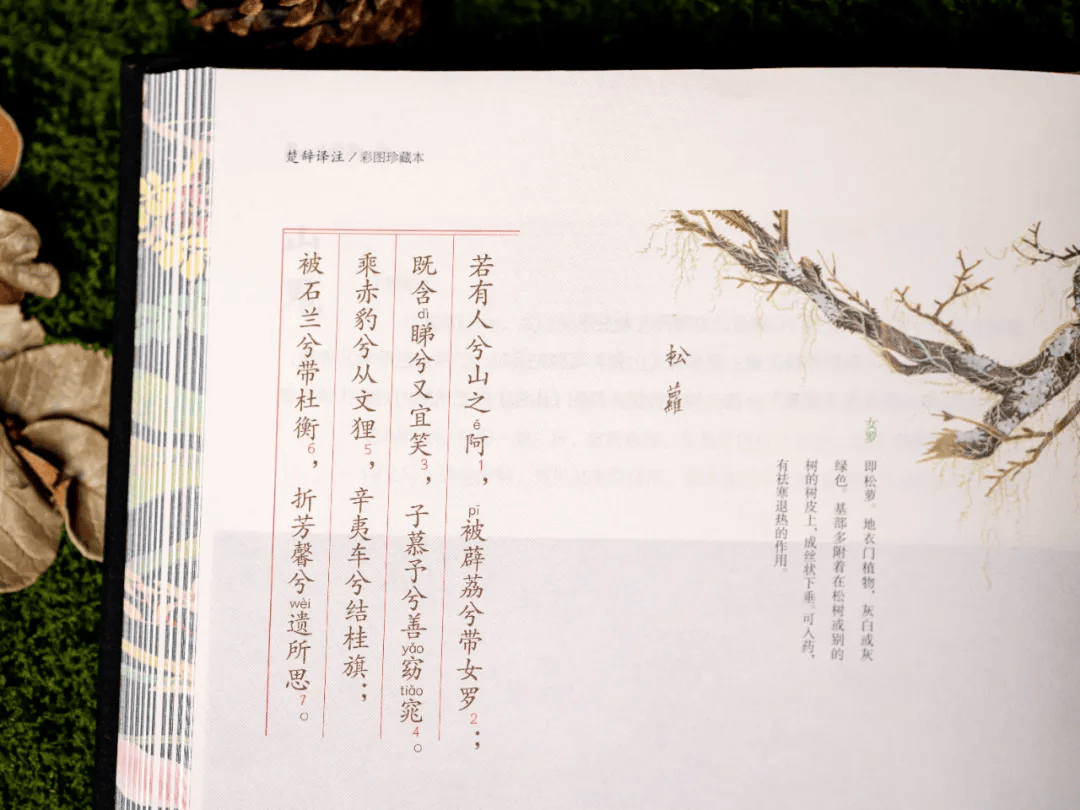 楚辞译注/彩图珍藏本
若有人兮山之阿1，被薜荔兮带女罗2；
既含睇兮又宜笑3，子慕予兮善窈窕4。
乘赤豹兮从文狸5，辛夷车兮结桂旗；
被石兰兮带杜衡6，折芳馨兮遗所思7。
è
pī
dì
yǎo
tiǎo
wèi
松蘿
女萝
即松萝。地衣门植物，灰白或灰
绿色。基部多附着在松树或别的
树的树皮上，成丝状下垂。可入药，
有祛寒退热的作用。